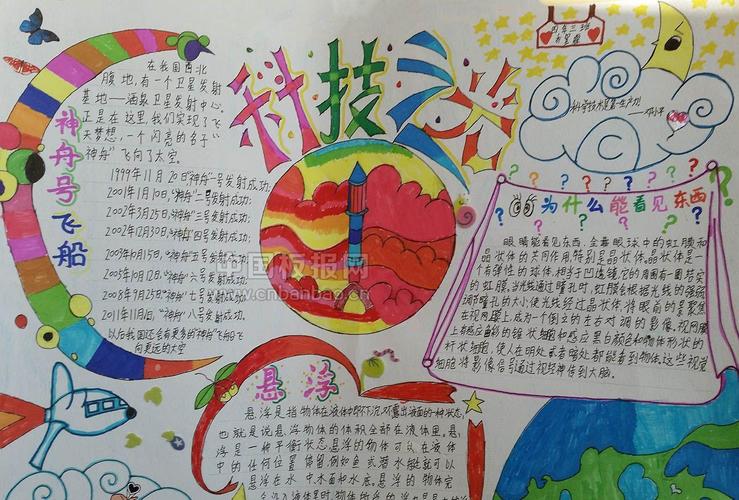 科技之光
四年三班
神舟号飞船
在我国西北
腹地,有一个卫星发射
基地——酒泉卫星发射中心,
正是在这里,我们实现了飞
天梦想,一个闪亮的名字“
神舟”飞向了太空。
1999年11月20日“神舟”一号发射成功;
2001年1月10日,“神舟”二号发射成功;
2002年3月25日“神舟”三号发射成功;
2002年12月30日“神舟”四号发射成功;
2003年10月15日“神舟”五号发射成功;
2005年10月12日“神舟”六号发射成功;
2008年9月25日“神舟”七号发射成功;
2011年11月1日,“神舟”八号发射成功,
以后我国还会有更多的“神舟”飞船飞
向更远的太空
科学技术是第一生产力
——邓小平
为什么能看见东西
眼睛能看见东西,全靠眼球中的虹膜和
晶状体的共同作用,特别是晶状体。晶状体是一
个有弹性的球体,相当于凸透镜,它的周围有一圈特定
的虹膜。当光线通过瞳孔时,虹膜会根据光线的强弱
调节瞳孔的大小,使光线经过晶状体,将眼前的景聚焦
在视网膜上,成为一个倒立的左右对调的影像。视网膜
上有感应色彩的锥状细胞和感应黑白颜色和物体形状的
杆状细胞,使人在明处或者暗处都能看到物体。这些视觉
细胞将影像信号通过视经神传到大脑。
中国板报网
www.cnbanbao.cn
悬浮
悬浮是指物体在液体中既不下沉,不露出液面的一种状态
也就是说悬浮物体的体积全部在液体里。悬
浮是一种平衡状态悬浮的物体可以在液体
中的任何位置停留,例如鱼或潜水艇就可以
悬浮在水中、水面和水底。悬浮的物体完